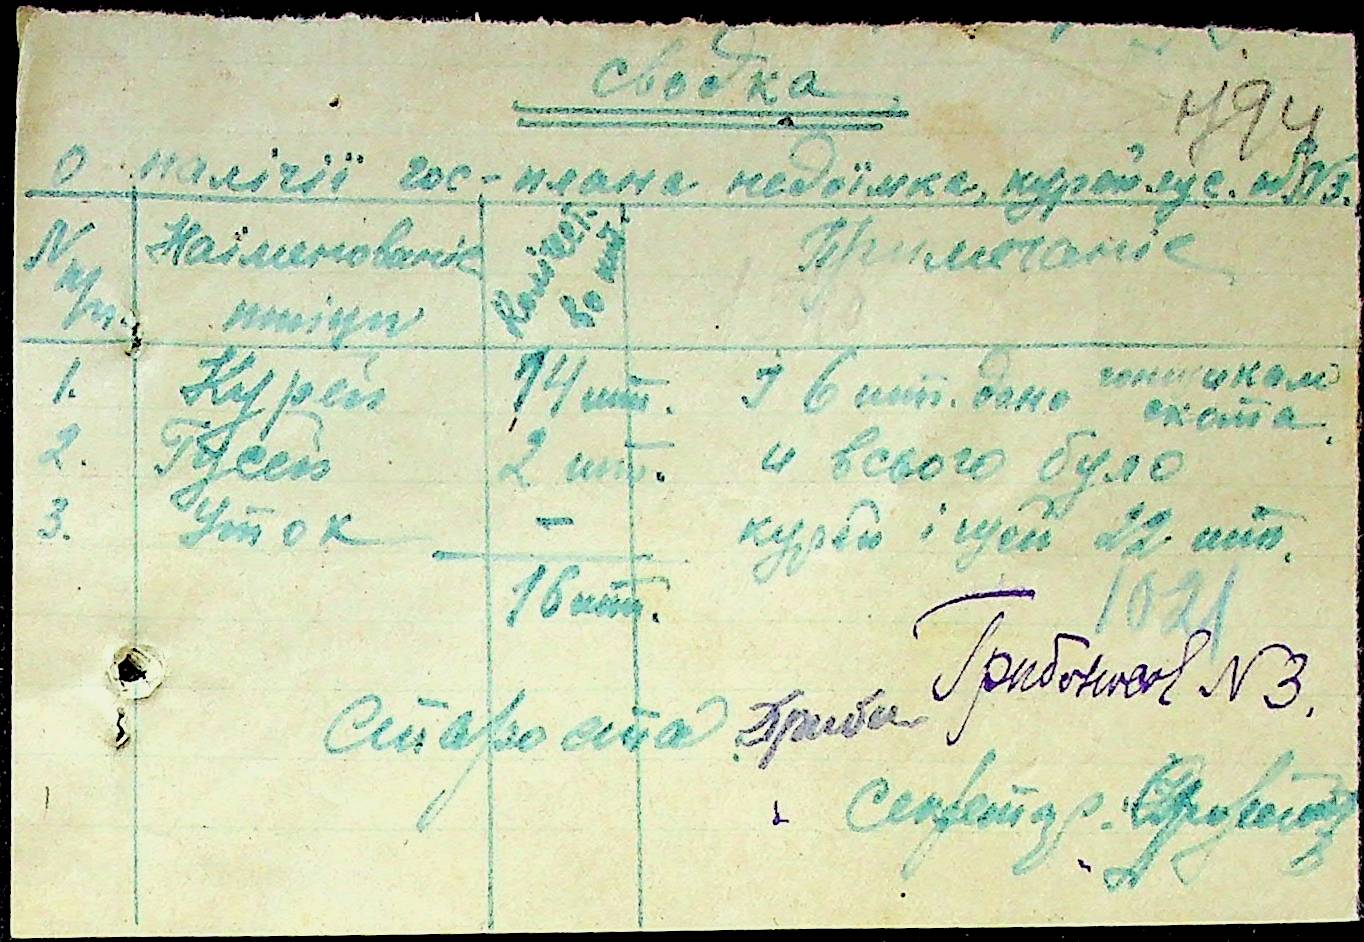 сводка
494
О налічії гос-плана недоїмка, курей гус.
N п/п. Наіменованіє птіци Колічест-во шт. Примечаніє
1. Курей 14 шт. І 6 шт. дано гонщикам скота.
2. Гусей 2 шт. и всього було
3. Уток - курей і гусей 22 шт.
16 шт.
1021
Грибоносов N 3.
Староста
Секретар.